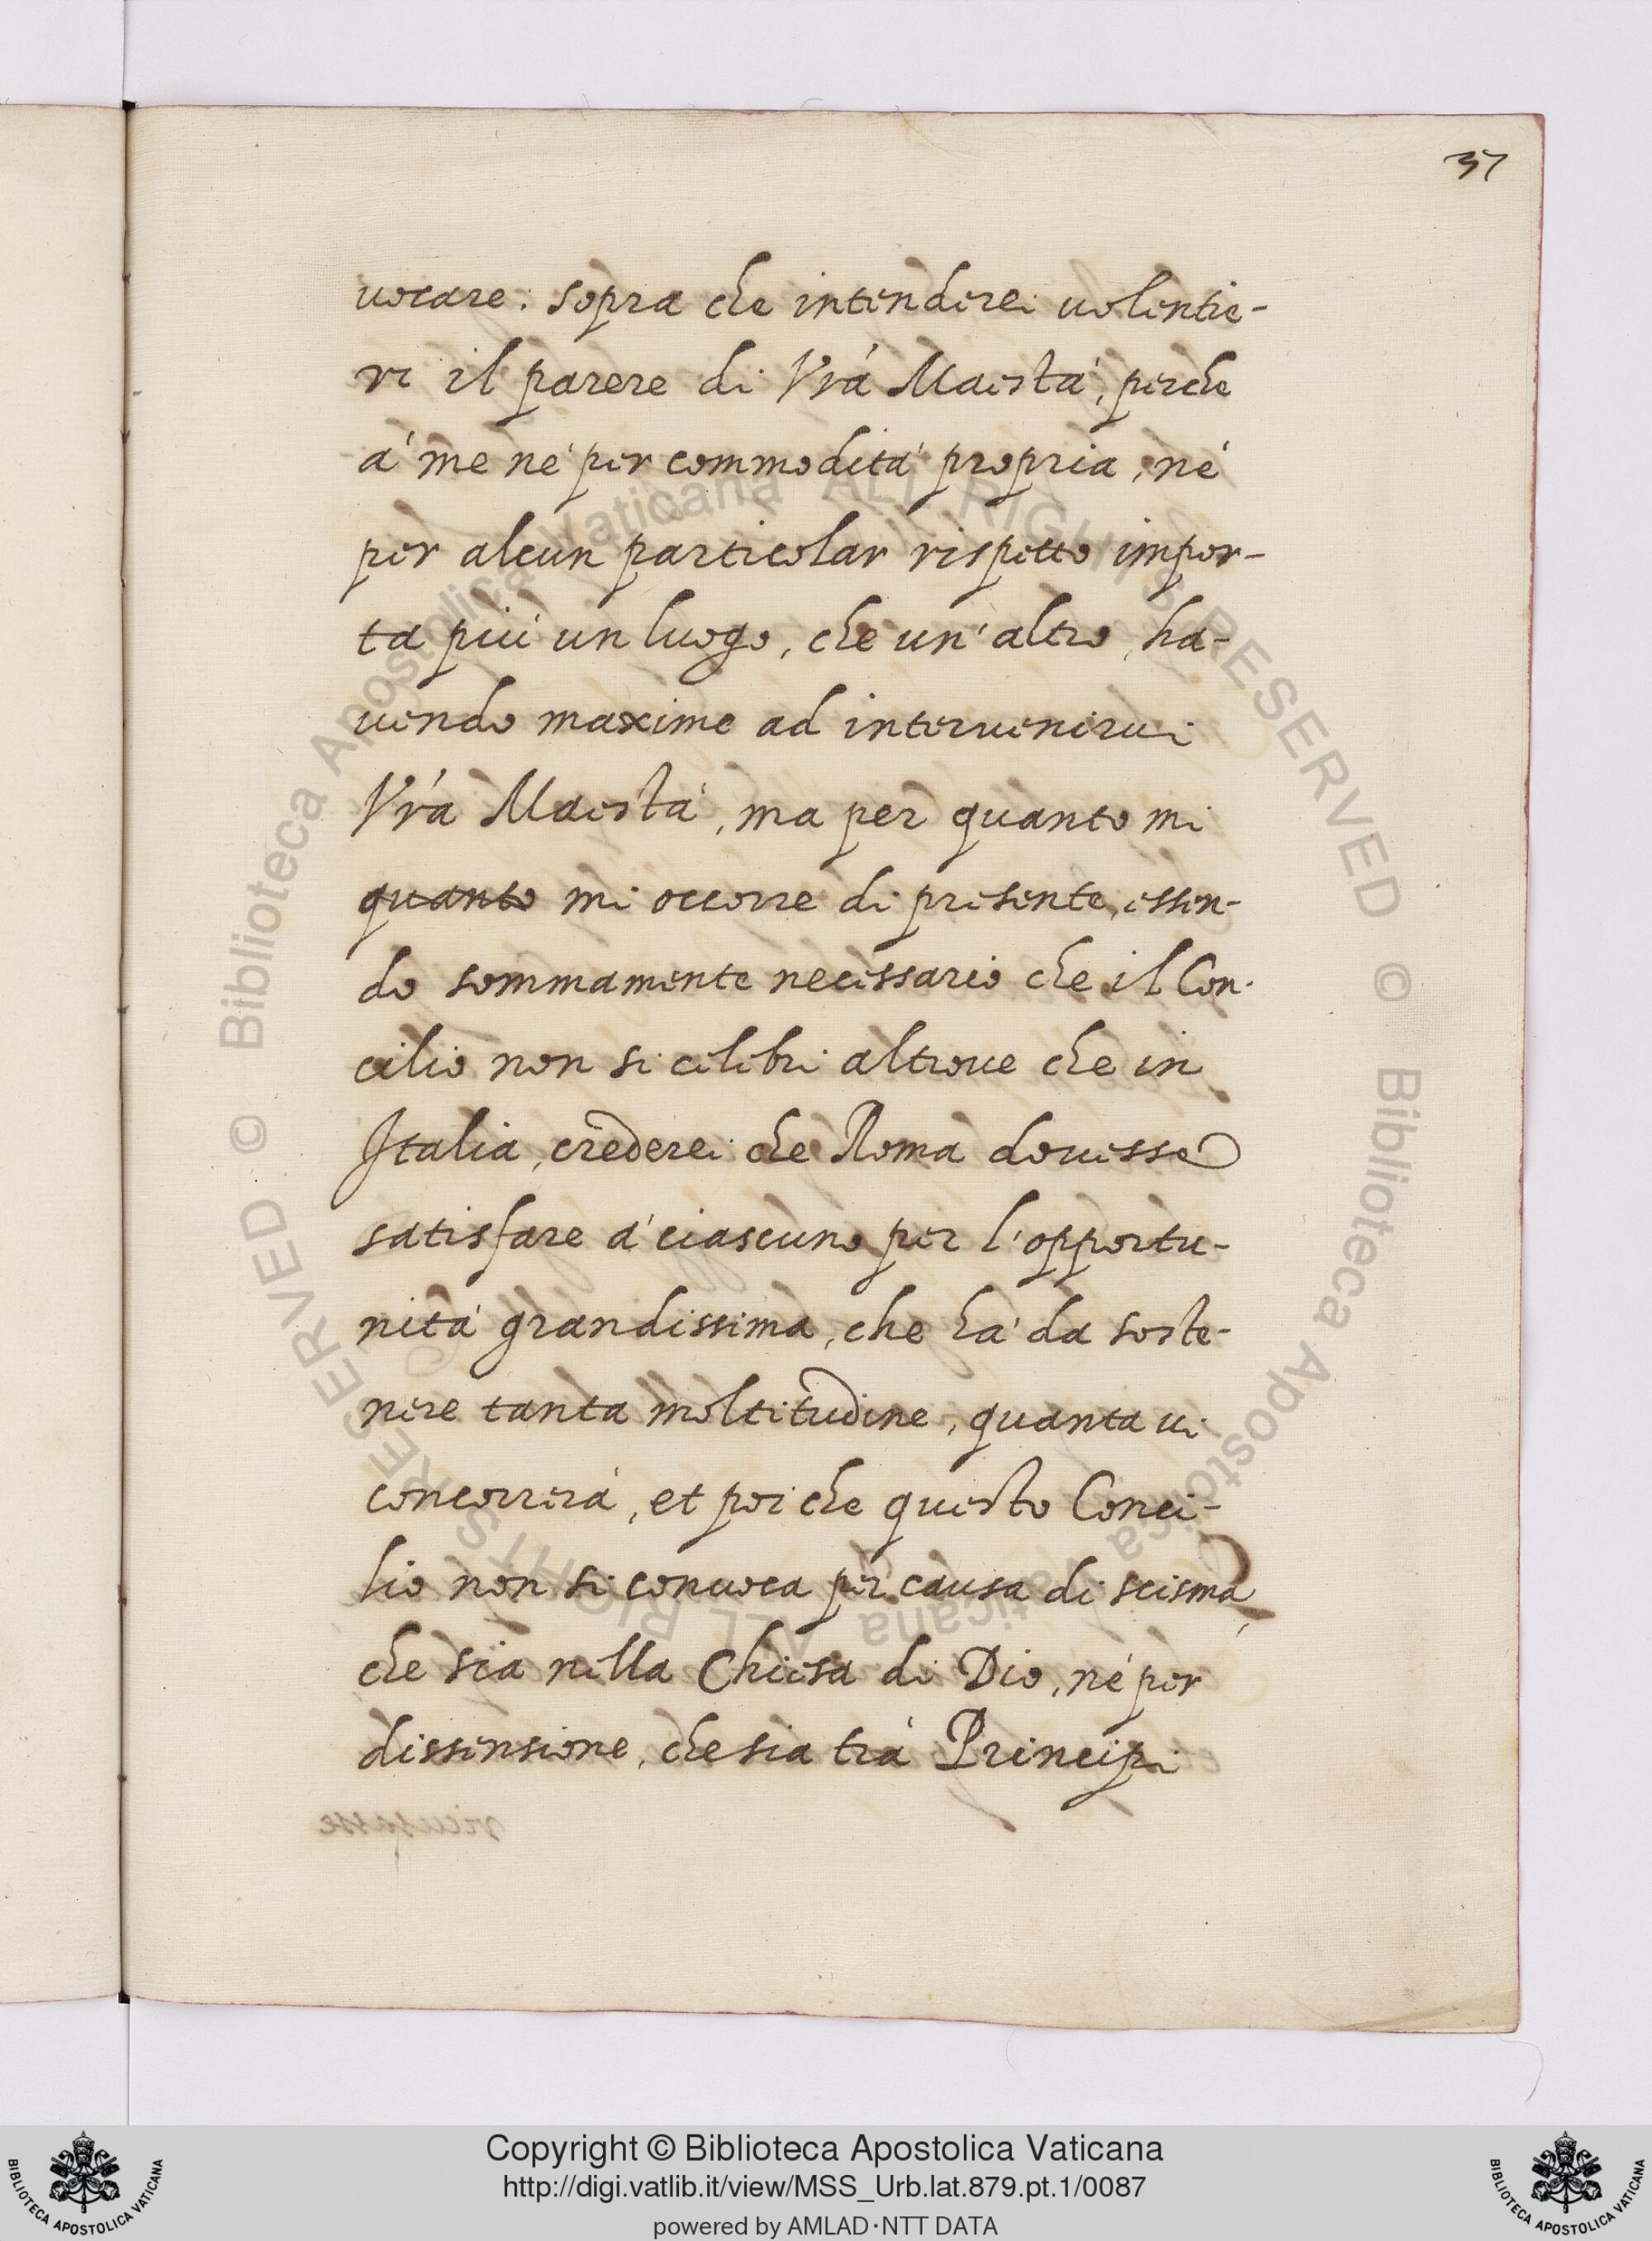 37
uocare: sopra che intenderei uolentie-
ri il parere di Vrá Maestá, perche
á me né per commoditá propria, né
per alcun particolar rispetto impor-
ta piú un luogo, che un'altro, ha-
uendo maxime ad interuenirui
Vrá Maestá, ma per quanto mi
quanto mi occorre di presente, essen-
do sommamente necessario che il Con-
cilio non si celebri altroue che in
Italia, crederei che Roma douesse
satisfare á ciascuno per l'opportu-
nitá grandissima, che há da soste-
nere tanta moltitudine, quanta ui
concorrerá, et poi che questo Conci-
lio non si conuoca per causa di scisma,
che sia nella Chiesa di Dio, né per
dissensione, che sia trá Principi
Biblioteca Apostolica Vaticana ALL RIGHTS RESERVED ©
Biblioteca Apostolica Vaticana ALL RIGHTS RESERVED ©
Copyright © Biblioteca Apostolica Vaticana
http://digi.vatlib.it/view/MSS_Urb.lat.879.pt.1/0087
powered by AMLAD·NTT DATA
BIBLIOTECA APOSTOLICA VATICANA
BIBLIOTECA APOSTOLICA VATICANA